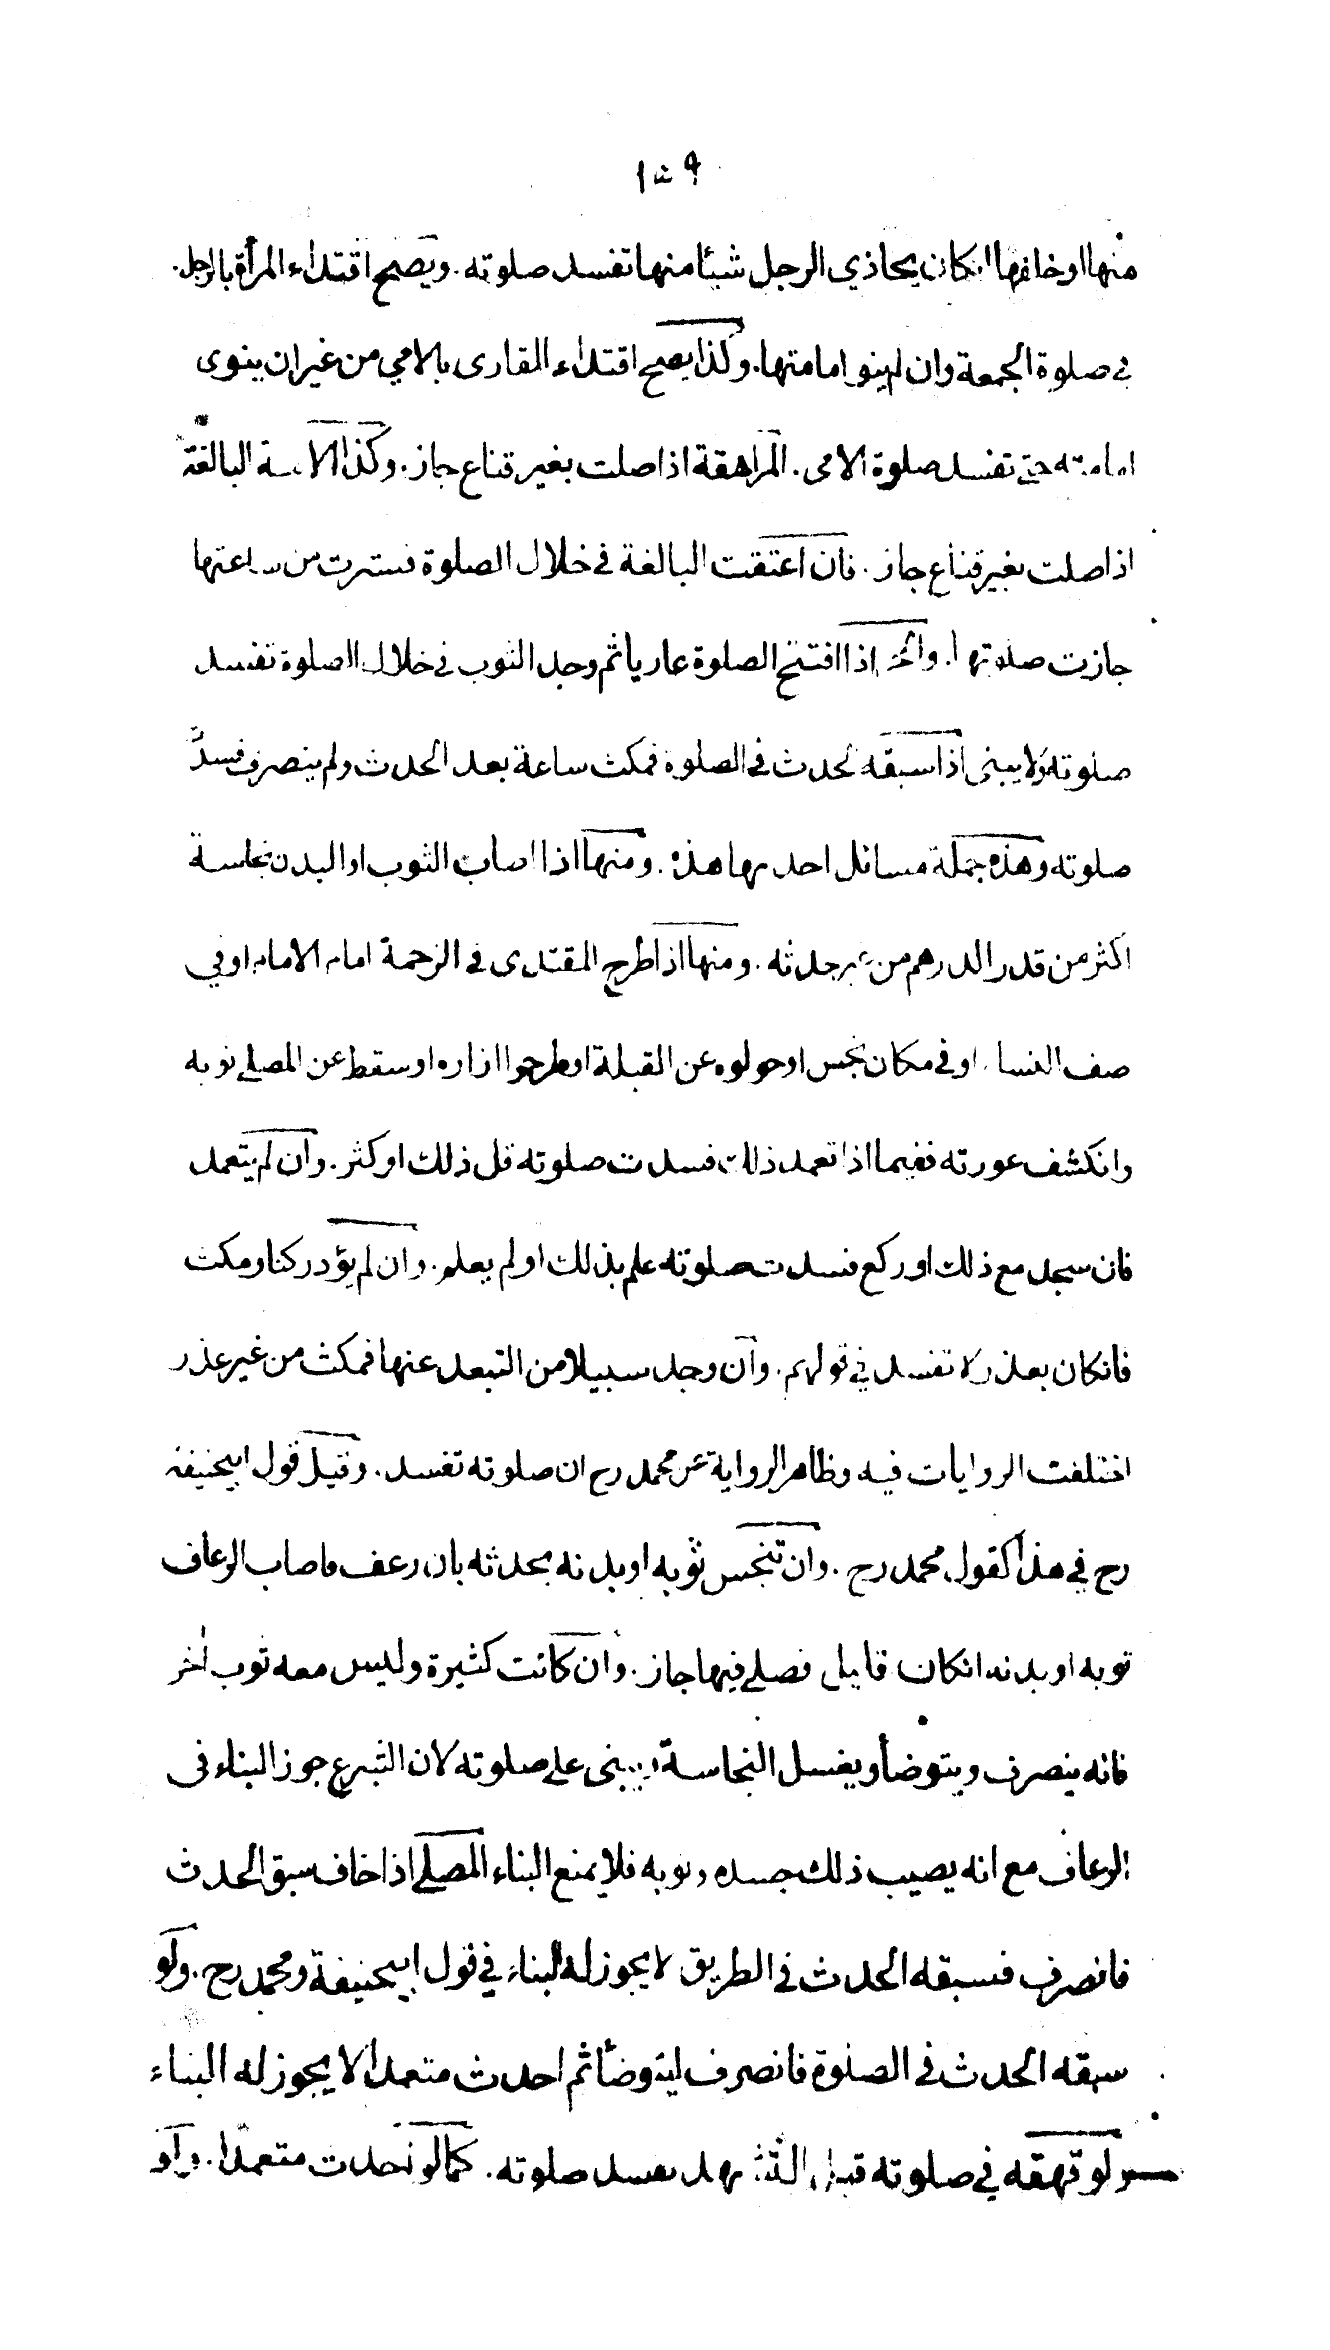 ١٥٩
منها او خلفها انكان يحاذي الرجل شيئا منها تفسد صلوته . ويصح اقتداء المرأة بالرجل .
في صلوة الجمعة وان لم ينو امامتها . وكذا يصح اقتداء القارى بالامي من غير ان ينوى
امامته حتى تفسد صلوة الامى . المراهقة اذا صلت بغير قناع جاز . وكذا الامة البالغة
اذا صلت بغير قناع جاز . فان اعتقت البالغة في خلال الصلوة فسترت من ساعتها
جازت صلوتها . والحر اذا افتتح الصلوة عاريا ثم وجد الثوب في خلال الصلوة تفسد
صلوته ولا يبنى اذا سبقه الحدث في الصلوة فمكث ساعة بعد الحدث ولم ينصرف فسدت
صلوته وهذه جملة مسائل احديها هذه . ومنها اذا اصاب الثوب او البدن نجاسة
اكثر من قدر الدرهم من غير حدثه . ومنها اذا طرح المقتدى في الزحمة امام الامام او في
صف النساء او في مكان نجس او حولوه عن القبلة او طرحوا ازاره او سقط عن المصلي ثوبه
وانكشف عورته ففيما اذا تعمد ذلك فسدت صلوته قل ذلك او كثر . وان لم يتعمد
فان سجد مع ذلك او ركع فسدت صلوته علم بذلك او لم يعلم . وان لم يؤد ركنا ومكث
فانكان بعذر لا تفسد في قولهم . وان وجد سبيلا من التبعد عنها فمكث من غير عذر
اختلفت الروايات فيه وظاهر الرواية عن محمد رح ان صلوته تفسد . وقيل قول ابيحنيفة
رح في هذا كقول محمد رح . وان تنجس ثوبه او بدنه بحدثه بان رعف فاصاب الرعاف
ثوبه او بدنه انكان قليل فصلي فيها جاز . وان كانت كثيرة وليس معه ثوب اخر
فانه ينصرف ويتوضأ ويغسل النجاسة ويبنى على صلوته لان الشرع جوز البناء فى
الرعاف مع انه يصيب ذلك جسده وثوبه فلا يمنع البناء المصلي اذا خاف سبق الحدث
فانصرف فسبقه الحدث في الطريق لا يجوز له البناء في قول ابيحنيفة ومحمد رح . ولو
سبقه الحدث في الصلوة فانصرف ليتوضأ ثم احدث متعمدا لا يجوز له البناء
ولو قهقه في صلوته قبل التشهد تفسد صلوته . كما لو احدث متعمدا . ولو